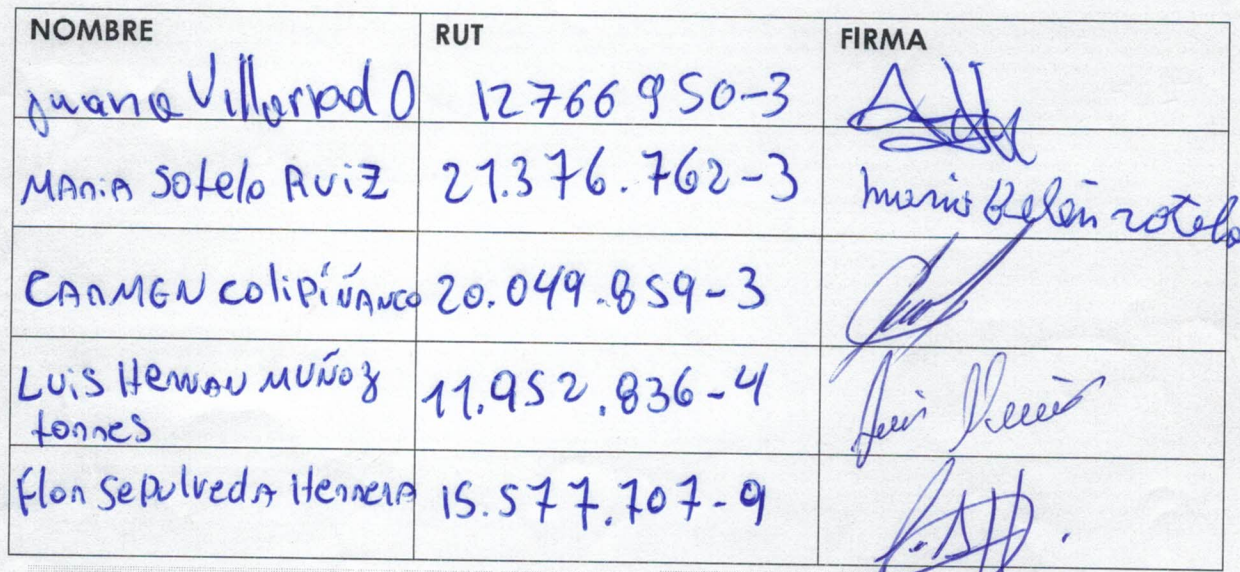 NOMBRE RUT FIRMA
Juana Villarroel O 12766950-3
MARIA Sotelo RUIZ 21.376.762-3 Maria Belén sotelo
CARMEN COLIPIÑANCO 20.049.859-3
LUIS HERNAN MUÑOZ 11.952.836-4 Luis Muñoz
torres
Flor Sepulveda Herrera 15.577.707-9